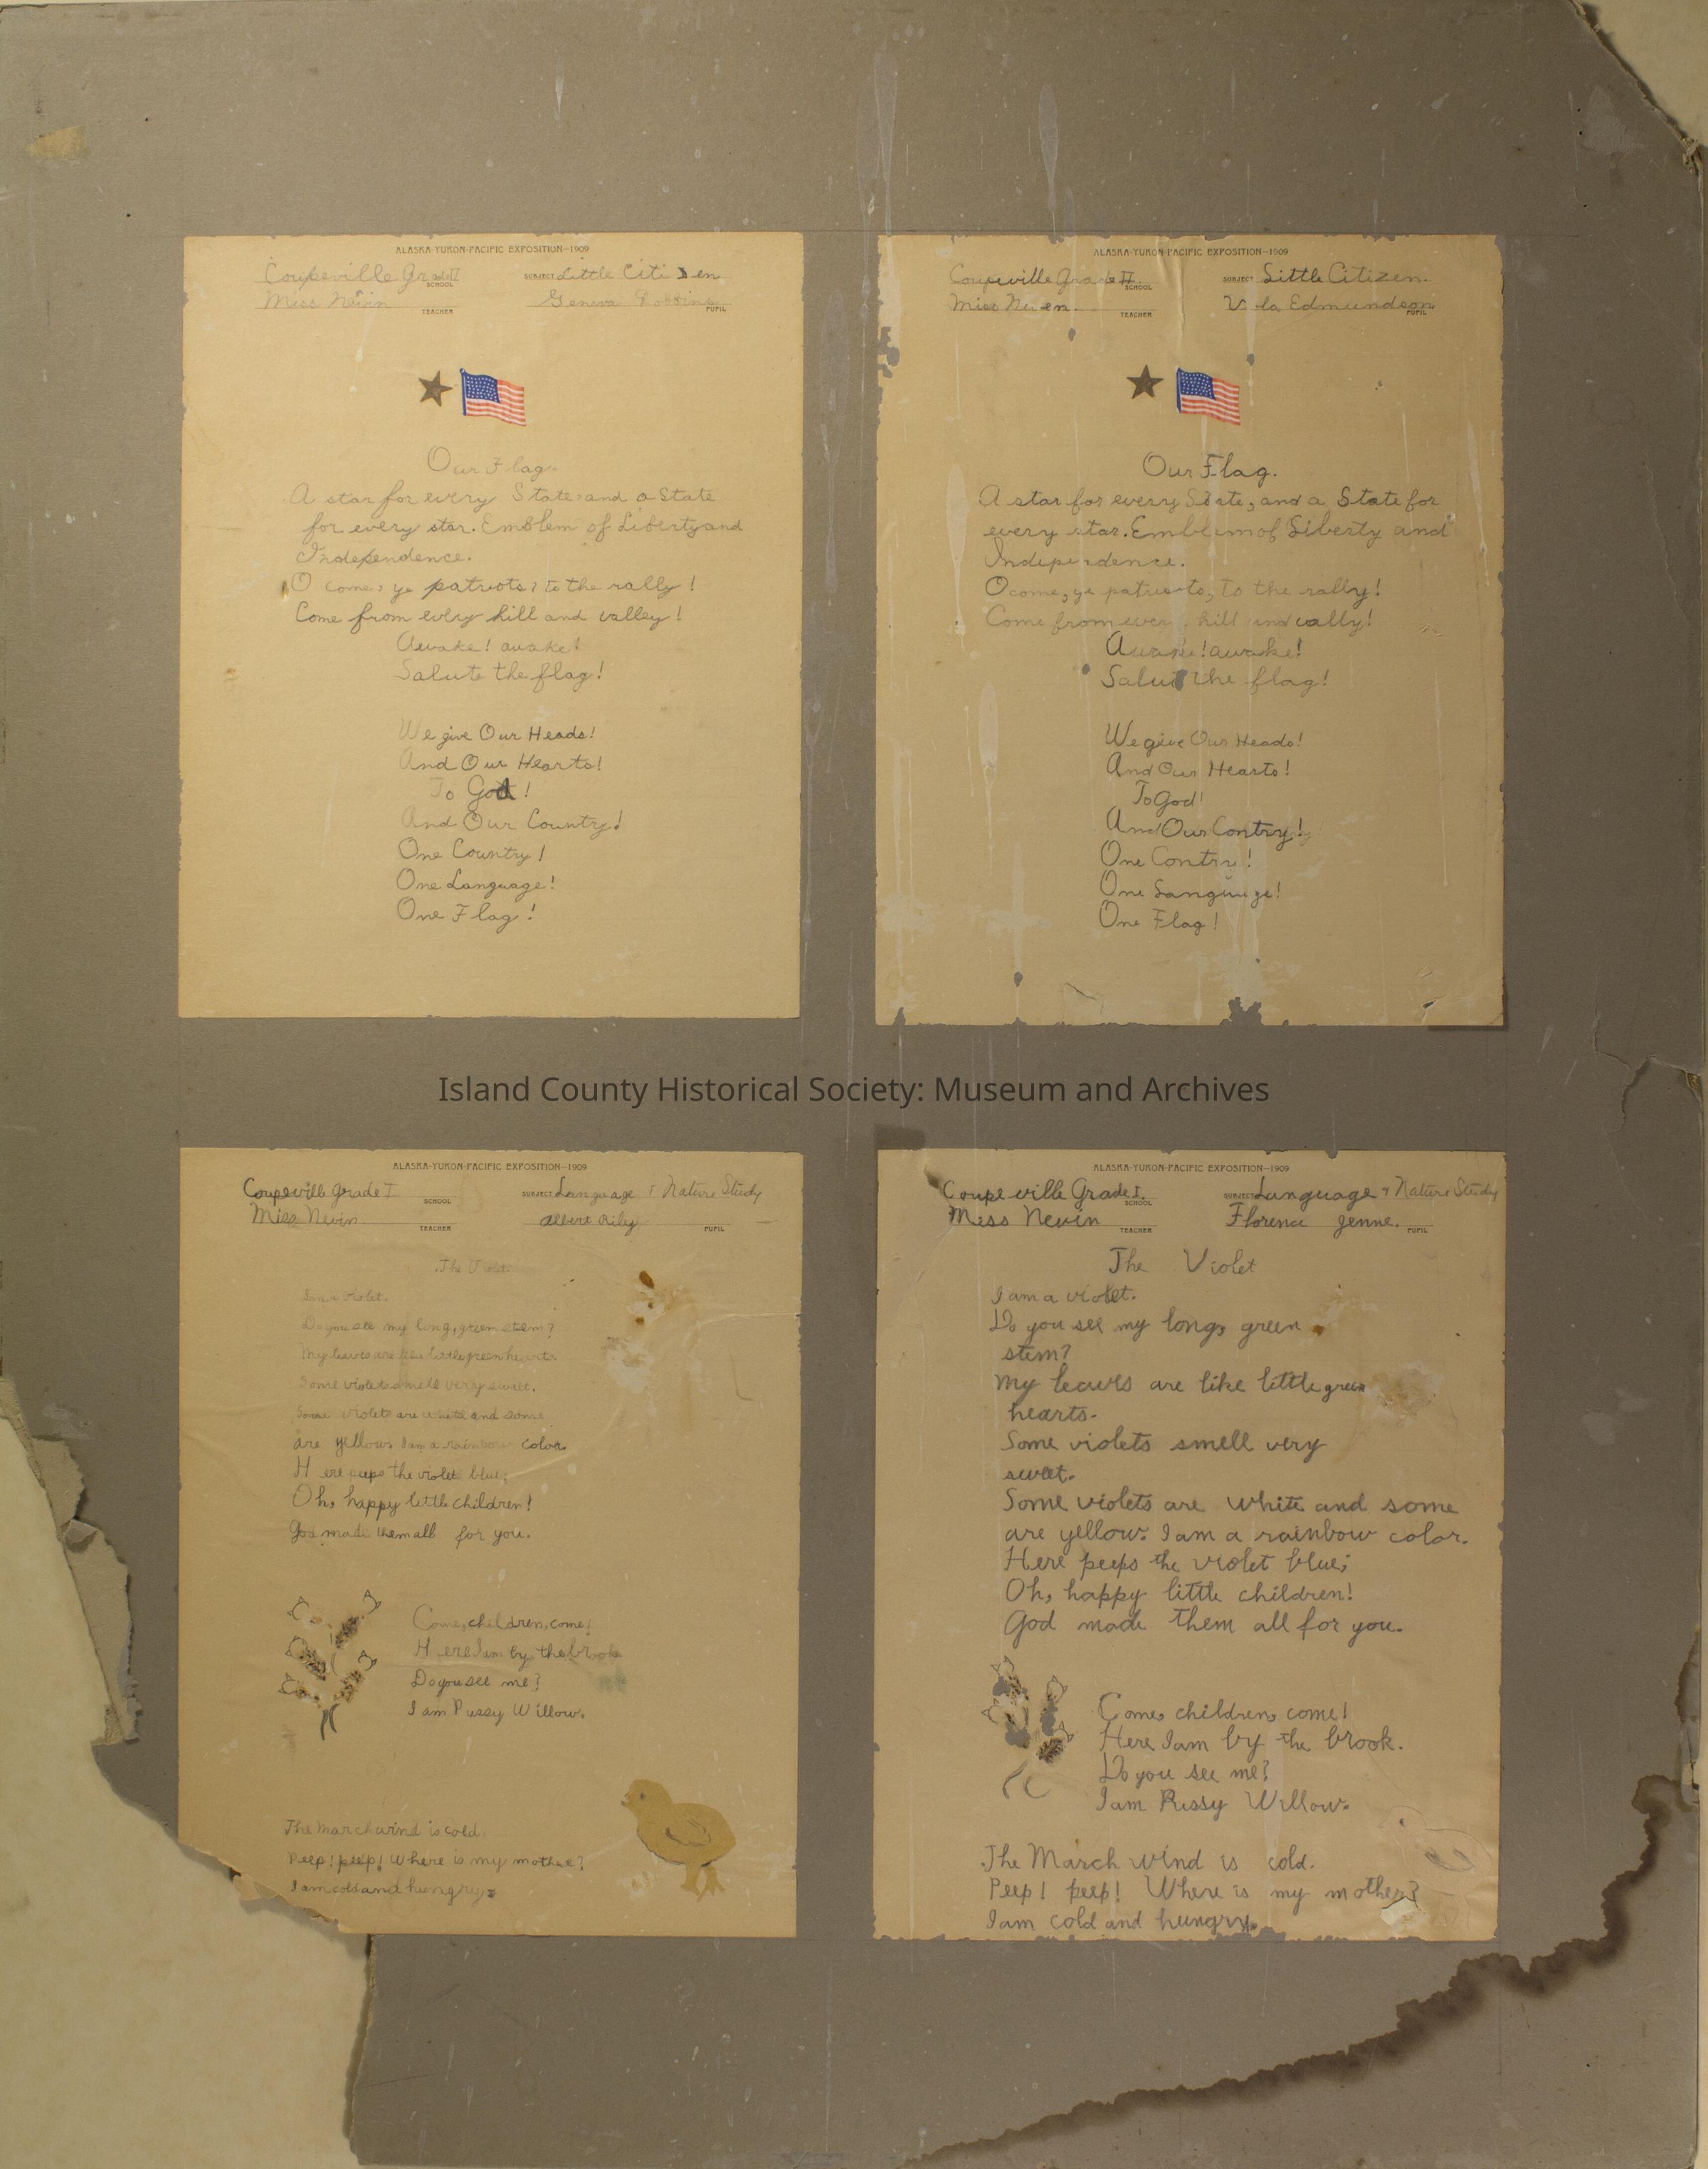 ALASKA-YUKON-PACIFIC EXPOSITION-1909
Coupeville Grade II SCHOOL
SUBJECT Little Citizen
Miss Nevin TEACHER
Geneva PUPIL
Our Flag.
A star for every State and a State
for every star. Emblem of Liberty and
Independence.
O come, ye patriots, to the rally!
Come from every hill and valley!
Awake! awake!
Salute the flag!
We give Our Heads!
And Our Hearts!
To God!
And Our Country!
One Country!
One Language!
One Flag!
ALASKA-YUKON-PACIFIC EXPOSITION-1909
Coupeville Grade II. SCHOOL
SUBJECT Little Citizen.
Miss TEACHER
Edmundson PUPIL
Our Flag.
A star for every State, and a State for
every star. Emblem of Liberty and
Independence.
O come, ye patriots, to the rally!
Come from every hill and vally!
Awake! awake!
Salute the flag!
We give Our Heads!
And Our Hearts!
To God!
And Our Contry!
One Contry!
One Language!
One Flag!
Island County Historical Society: Museum and Archives
ALASKA-YUKON-PACIFIC EXPOSITION-1909
Coupeville Grade I SCHOOL
SUBJECT Language & Nature Study
Miss Nevin TEACHER
Albert Rily PUPIL
The Violet
I am a violet.
Do you see my long, green stem?
My leaves are like little green hearts
Some violets smell very sweet.
Some violets are white and some
are yellow. I am a rainbow color.
Here peeps the violet blue;
Oh, happy little children!
God made them all for you.
Come, children, come!
Here I am by the brook
Do you see me?
I am Pussy Willow.
The March wind is cold.
Peep! peep! Where is my mother?
I am cold and hungry.
ALASKA-YUKON-PACIFIC EXPOSITION-1909
Coupeville Grade I. SCHOOL
SUBJECT Language & Nature Study
Miss Nevin TEACHER
Florence Jenne. PUPIL
The Violet
I am a violet.
Do you see my long, green
stem?
My leaves are like little green
hearts.
Some violets smell very
sweet.
Some violets are white and some
are yellow. I am a rainbow color.
Here peeps the violet blue;
Oh, happy little children!
God made them all for you.
Come, children, come!
Here I am by the brook.
Do you see me?
I am Pussy Willow.
The March wind is cold.
Peep! peep! Where is my mother?
I am cold and hungry.